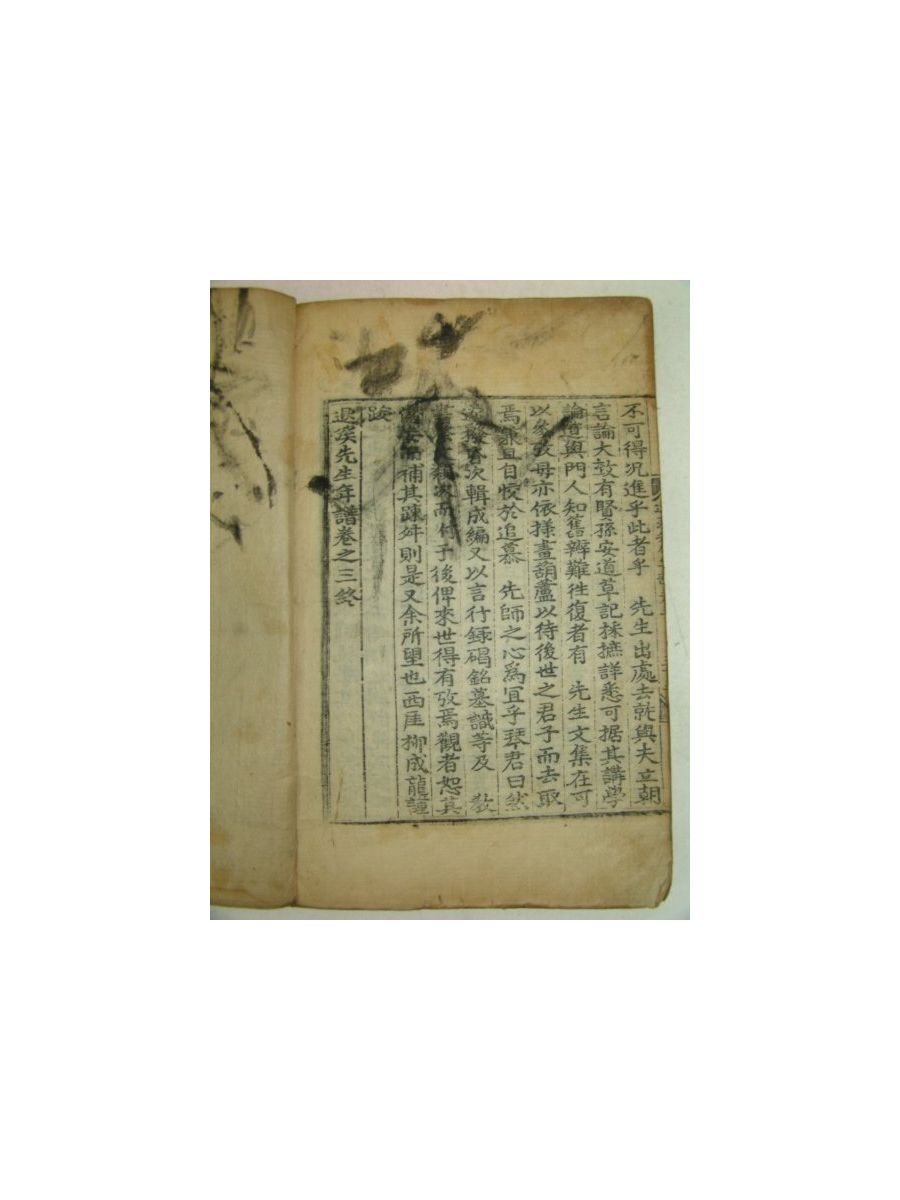 不可得况進乎此者乎 先生出處去就與夫立朝
言論大致有賢孫安道草記採摭詳悉可据其講學
論道與門人知舊辨難往復者有 先生文集在可
以參攷毋亦依㨾畫葫蘆以待後世之君子而去取
焉兼且自悅於追慕 先師之心爲宜乎琴君曰然
次輯成編又以言行錄碣銘墓識等及 敎
次而附于後俾來世得有攷焉觀者恕其
妄而補其踈舛則是又余所望也西厓柳成龍謹
跋
退溪先生年譜卷之三終